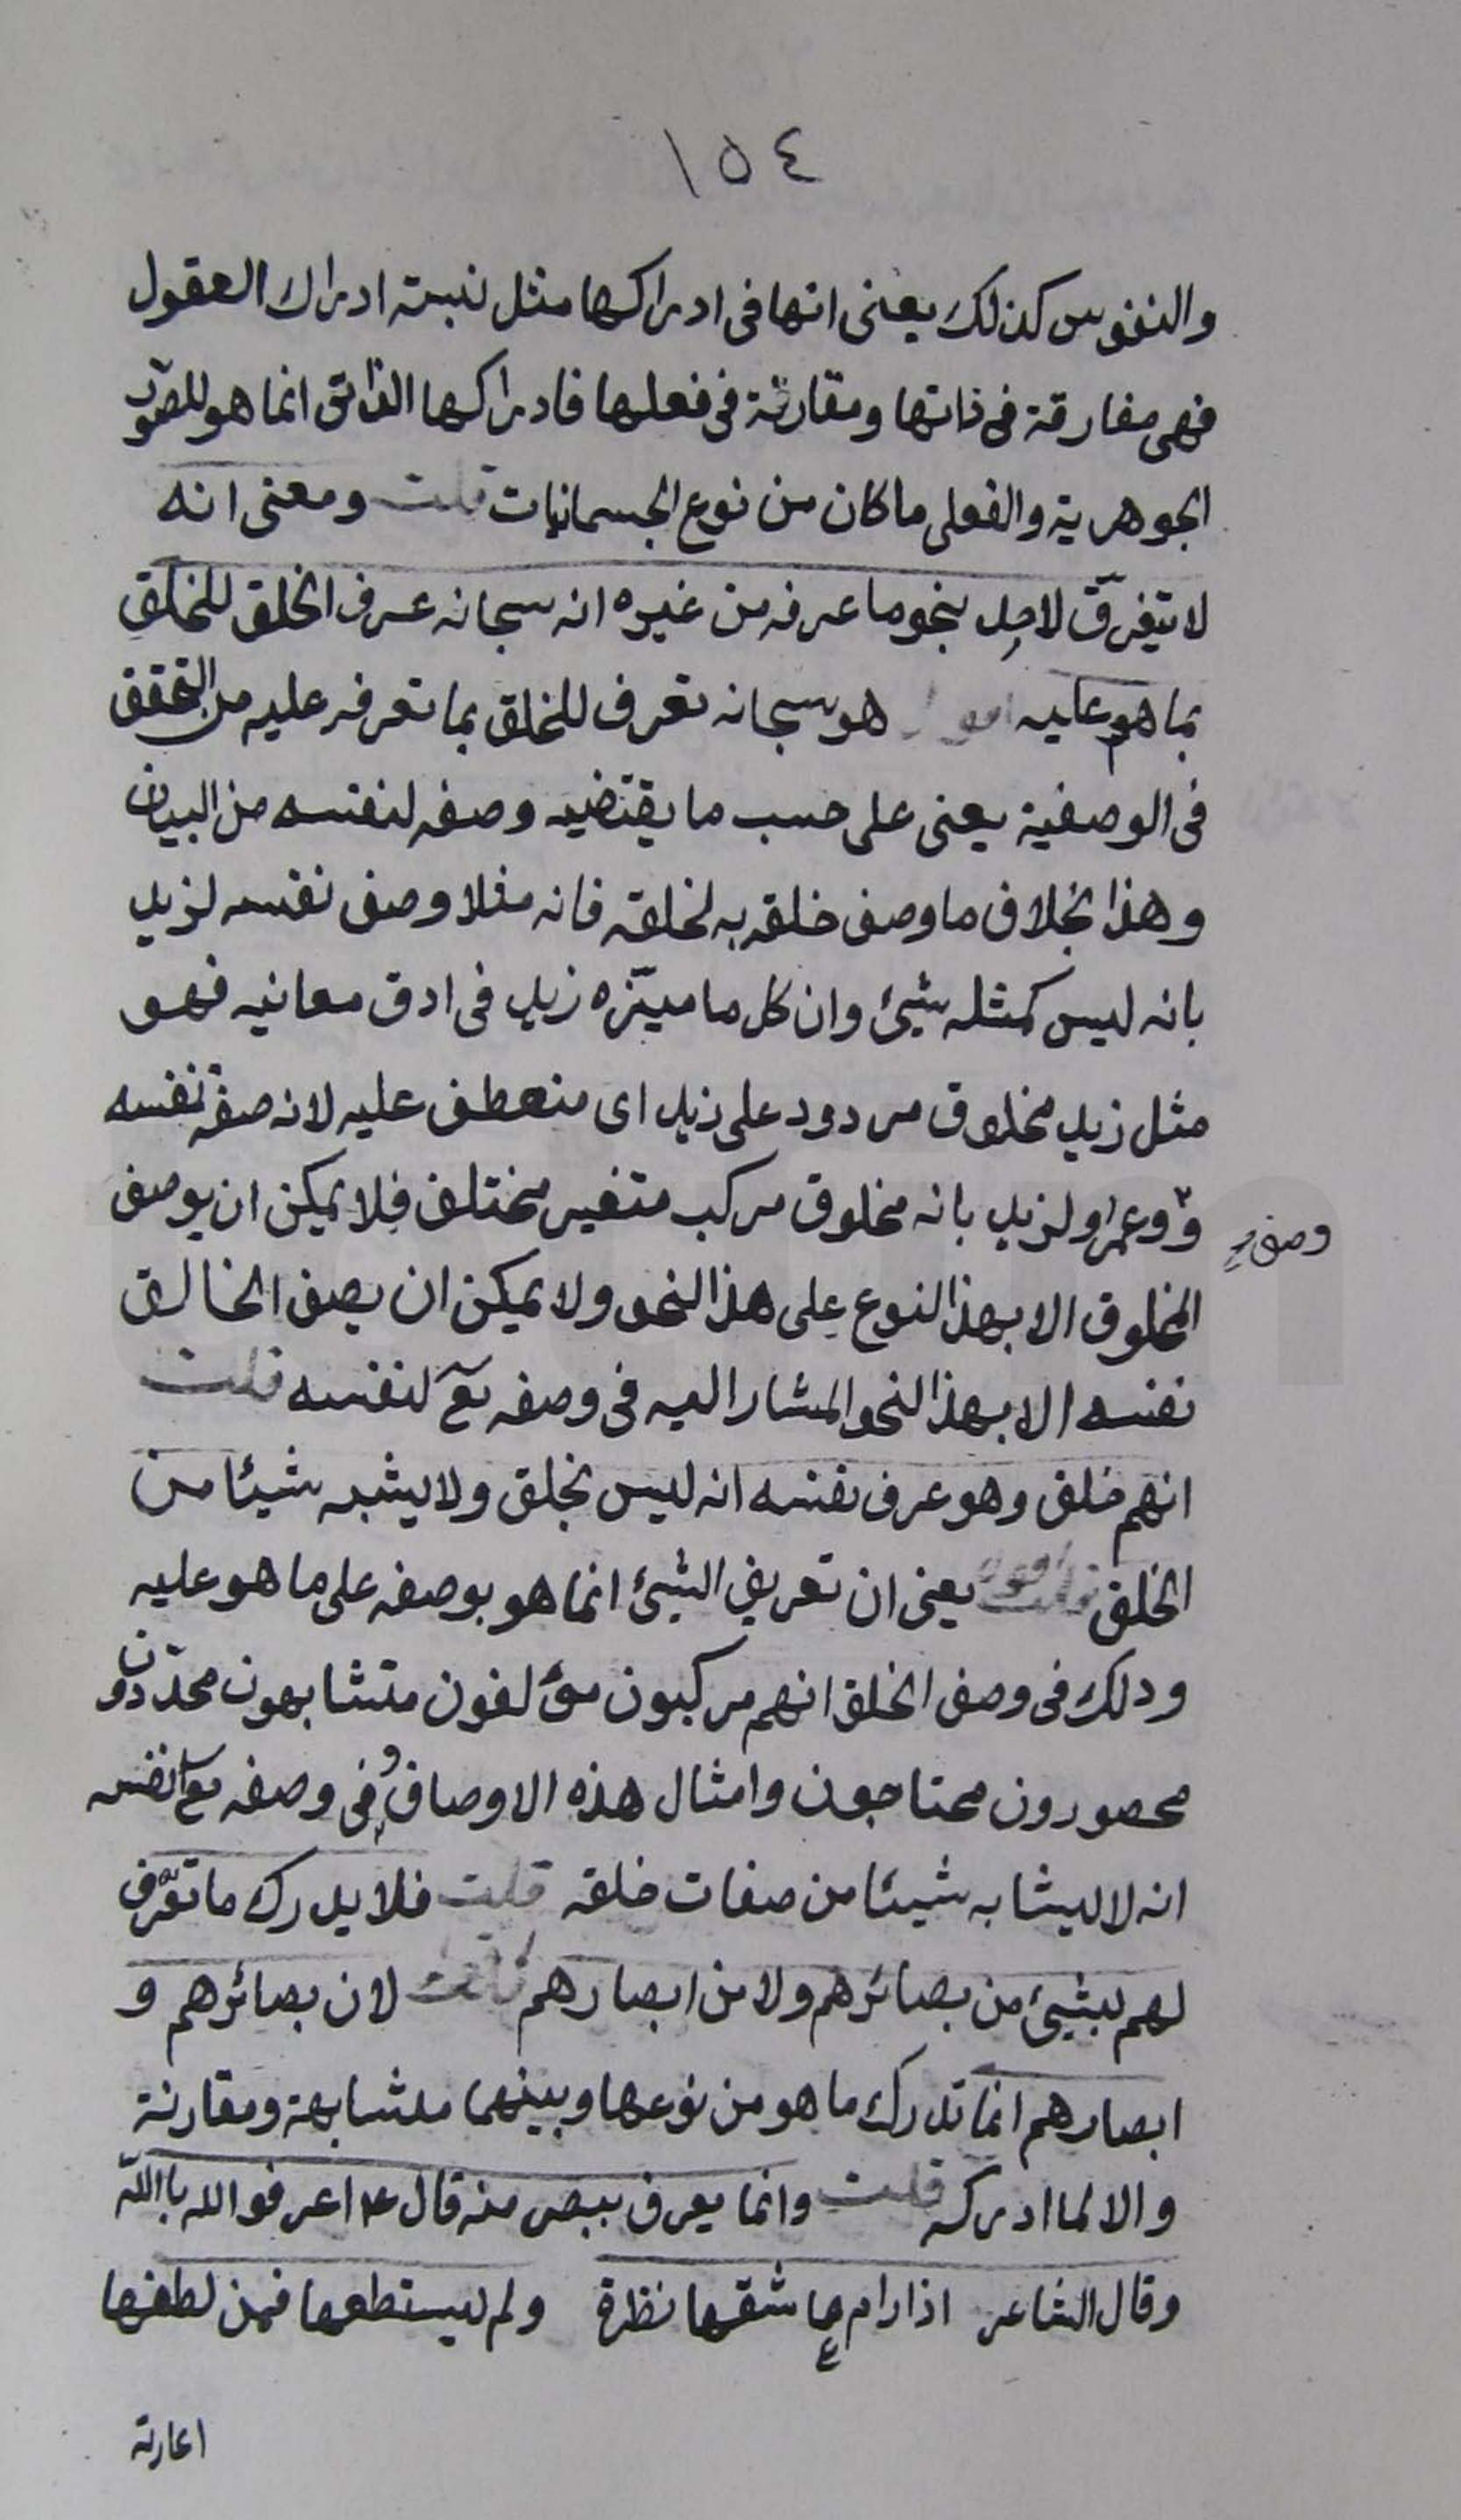 ١٥٤
والنفوس كذلك يعنى انها فى ادراكها مثل نسبة ادراك العقول
فهى مفارقة فى ذاتها ومقارنة فى فعلها فادراكها الذاتى انما هو للصور
الجوهرية والفعلى ما كان من نوع الجسمانيات قلت ومعنى انه
لا يتعرّف لاحد بنحو ما عرفه من غيره انه سبحانه عرف الخلق للخلق
بما هم عليه اقول هو سبحانه تعرف للخلق بما تعرفه عليه من التحقق
فى الوصفية يعنى على حسب ما يقتضيه وصفه لنفسه من البيان
وهذا بخلاف ما وصف خلقه به لخلقه فانه مثلا وصف نفسه لزيد
بانه ليس كمثله شيئ وان كل ما ميّزه زيد فى ادق معانيه فهو
مثل زيد مخلوق مردود على زيد اى منعطف عليه لانه صفة نفسه
ووعمراو لزيد بانه مخلوق مركب متغير مختلف فلا يمكن ان يوصف
وصف
المخلوق الا بهذا النوع على هذا النحو ولا يمكن ان يصف الخالق
نفسه الا بهذا النحو المشار اليه فى وصفه تع لنفسه قلت
انهم خلق وهو عرف نفسه انه ليس بخلق ولا يشبه شيئا من
الخلق اقول يعنى ان تعريف الشيئ انما هو بوصفه على ما هو عليه
وذلك فى وصف الخلق انهم مركبون مؤلفون متشابهون محدّدون
محصورون محتاجون وامثال هذه الاوصاف وفى وصفه تع لنفسه
انه لا يشابه شيئا من صفات خلقه قلت فلا يدرك ما تعرّف
لهم بشيئ من بصائرهم ولا من ابصارهم لان بصائرهم و
ابصارهم انما تدرك ما هو من نوعها وبينهما مشابهة ومقارنة
والا لما ادركه قلت وانما يعرف ببصر منه قال ع اعرفوا الله بالله
وقال الشاعر اذا رام عاشقها نظرة ولم يستطعها فمن لطفها
اعارته